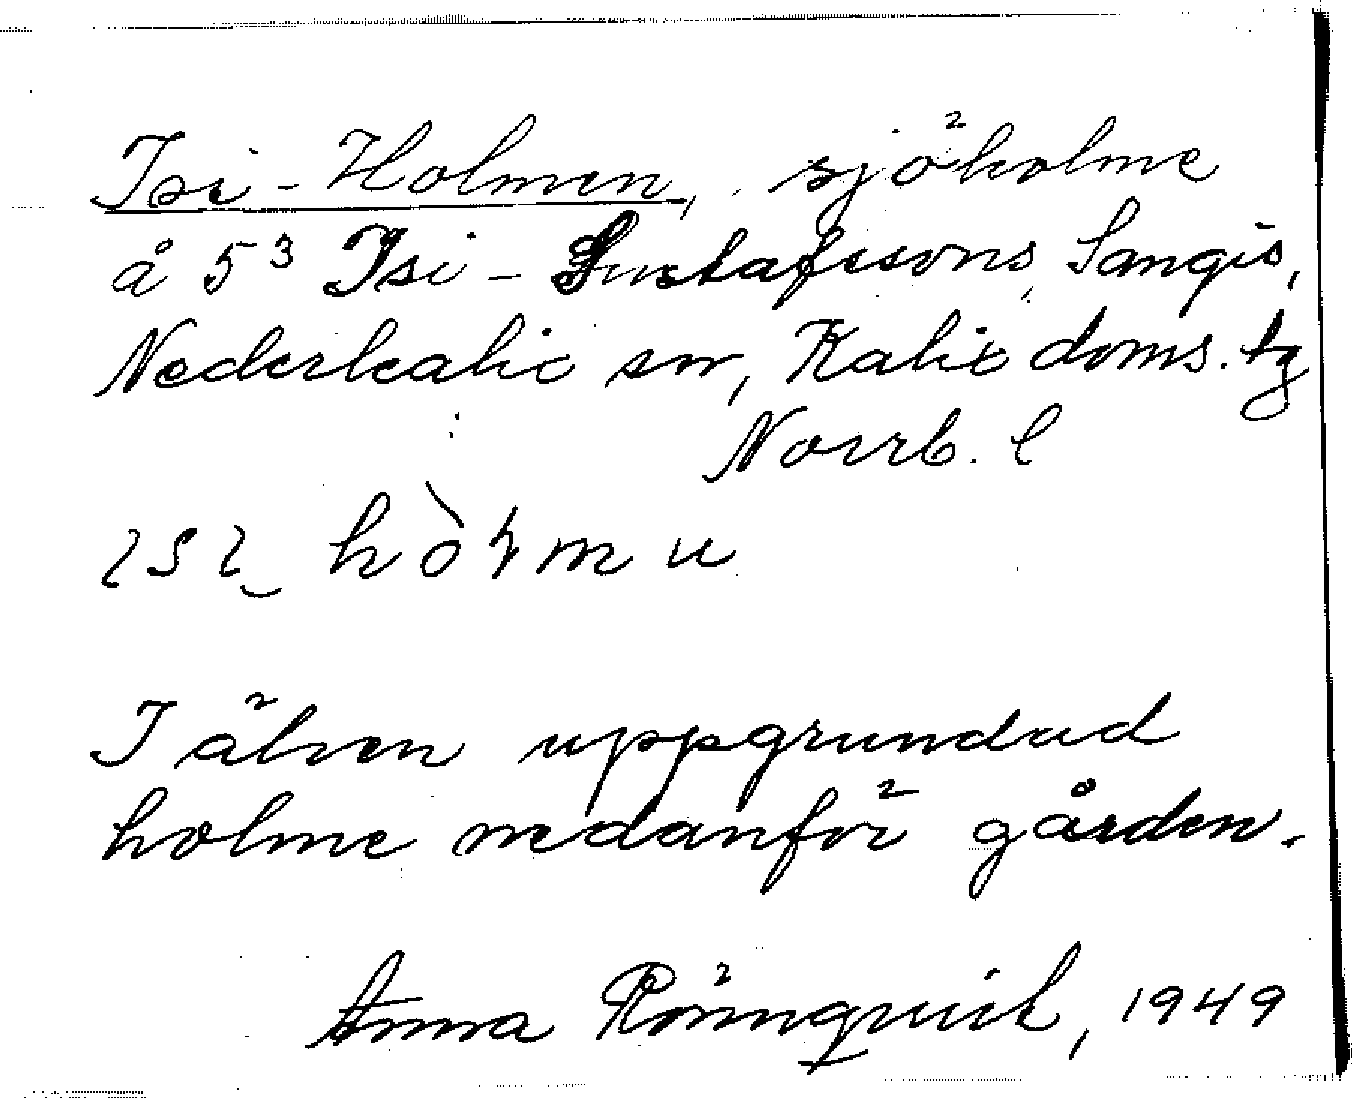 Isi-Holmen, sjöholme
å 5³ Isi-Gustafssons, Sangis,
Nederkalix sn, Kalix doms. tg
Norrb. l
ısı hòɫmu
I älven uppgrundad
holme nedanför gården.
Anna Rönnquist, 1949